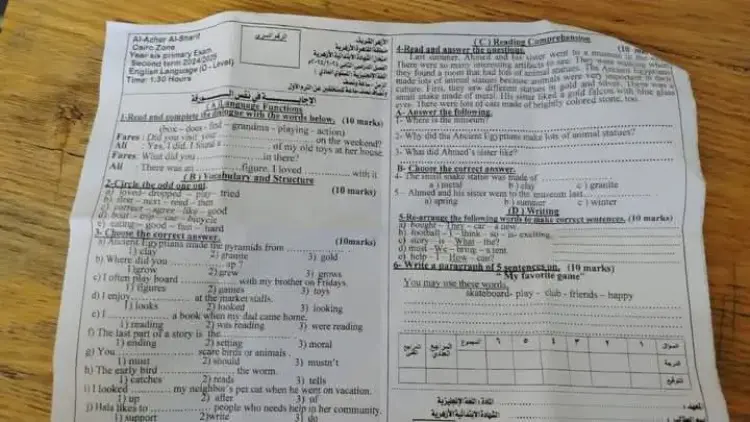 Al-Azhar Al-Sharif
Cairo Zone
Year six primary Exam
Second term 2024/2025
English Language (D - Level)
Time: 1:30 Hours
الرقم السري
الأزهر الشريف
منطقة القاهرة الأزهرية
الإجابة في نفس الورقة
(A) Language Functions
1-Read and complete the dialogue with the words below. (10 marks)
(box – does - find – grandma - playing - action)
Fares: Did you visit your ............ on the weekend?
Ali : Yes, I did. I found a ............ of my old toys at her house.
Fares: What did you ............ in there?
Ali : There was an ............ figure. I loved ............ with it
(B) Vocabulary and Structure
2-Circle the odd one out. (10 marks)
a) loved- dropped – play - tried
b) first – next - need – then
c) corner – agree – like – good
d) boat – trip – car – bicycle
e) eating – good – fast – hard
3- Choose the correct answer. (10marks)
a) Ancient Egyptians made the pyramids from ............
1) clay 2) granite 3) gold
b) Where did you ............ up ?
1) grow 2) grew 3) grows
c) I often play board ............ with my brother on Fridays.
1) figures 2) games 3) toys
d) I enjoy ............ at the market stalls.
1) looks 2) looked 3) looking
e) I ............ a book when my dad came home.
1) reading 2) was reading 3) were reading
f) The last part of a story is the ............
1) ending 2) setting 3) moral
g) You ............ scare birds or animals .
1) must 2) should 3) mustn't
h) The early bird ............ the worm.
1) catches 2) reads 3) tells
i) I looked ............ my neighbor's pet cat when he went on vacation.
1) up 2) after 3) of
j) Hala likes to ............ people who need help in her community.
1) support 2) write 3) do
(C) Reading Comprehension
4-Read and answer the questions. (10
Last summer, Ahmed and his sister went to a museum in the
There were so many interesting artifacts to see. They were walking when
they found a room that had lots of animal statues. The Ancient Egyptians
made lots of animal statues because animals were very important in their
culture. First, they saw different statues in gold and silver. There was a
small snake made of metal. His sister liked a gold falcon with blue glass
eyes. There were lots of cats made of brightly colored stone, too.
A- Answer the following.
1- Where is the museum?
2- Why did the Ancient Egyptians make lots of animal statues?
3- What did Ahmed's sister like?
B- Choose the correct answer.
4- The small snake statue was made of ............
a ) metal b ) clay c ) granite
5 – Ahmed and his sister went to the museum last ............
a) spring b) summer c ) winter
(D) Writing
5-Re-arrange the following words to make correct sentences. (10 marks)
a) bought – They – car – a new.
b) football – I – think – so – is – exciting.
c) story – is – What – the?
d) must – We – bring – a tent
e) help – I – How – can?
6- Write a paragraph of 5 sentences on. (10 marks)
"My favorite game"
You may use these words.
skateboard- play – club – friends – happy
السؤال ١ ٢ ٣ ٤ ٥ ٦ المجموع المراجع العددي المراجع الفني
الدرجة
التوقيع
المادة : اللغة الإنجليزية
الشهادة الابتدائية الأزهرية